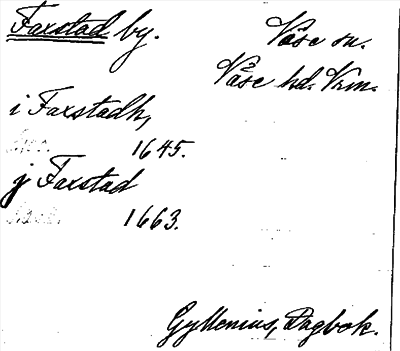 Faxstad by.
Väse sn.
Väse hd. Vrm.
i Faxstadh,
1645.
j Faxstad
1663.
Gyllenius, Dagbok.